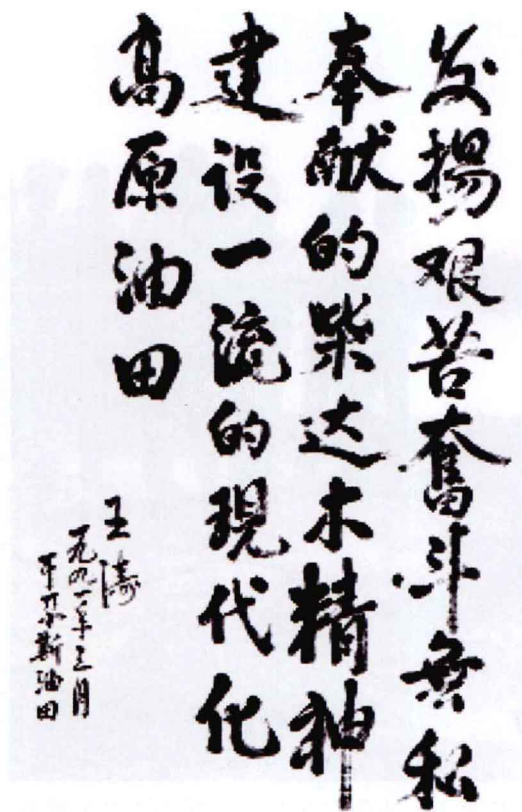 发揚艰苦奮斗無私
奉献的柴达木精神
建设一流的現代化
高原油田
王涛
一九九一年三月
于尕斯油田